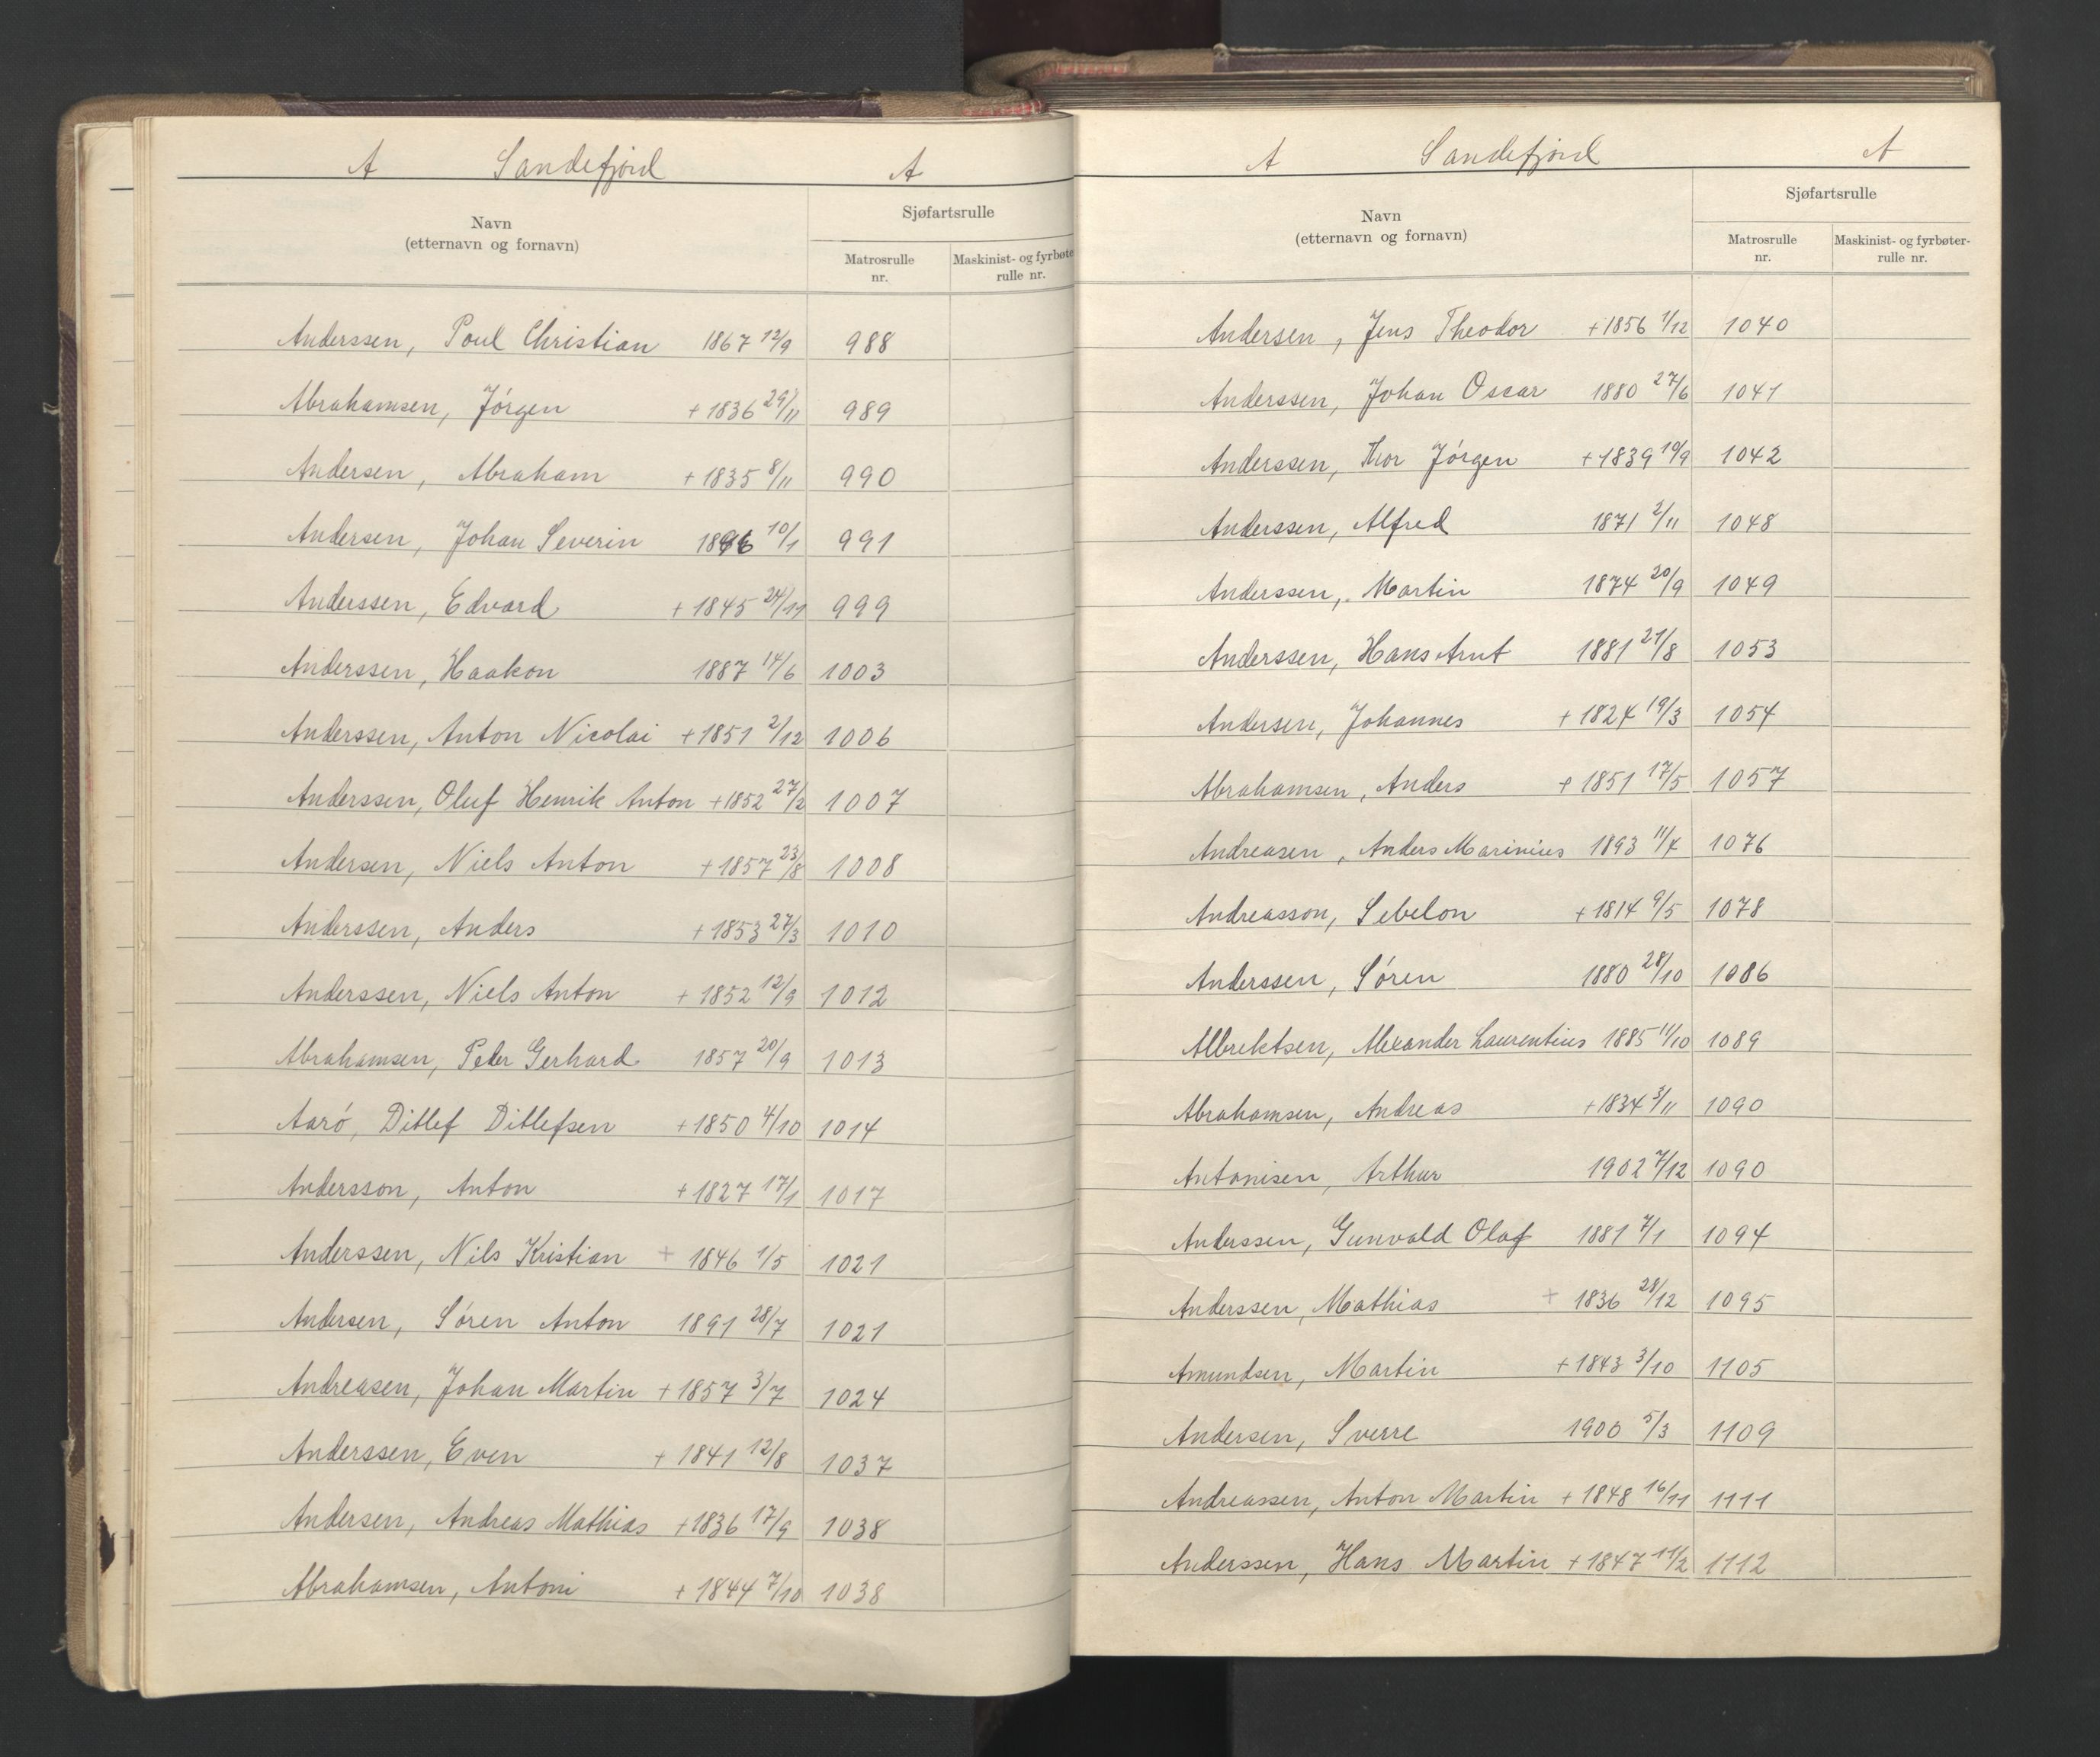 A Sandefjord A
Navn
(etternavn og fornavn)
Sjøfartsrulle
Matrosrulle
nr.
Maskinist- og fyrbøter-
rulle nr.
Anderssen, Poul Christian 1867 12/9 988
Abrahamsen, Jørgen + 1836 29/11 989
Andersen, Abraham + 1835 8/11 990
Andersen, Johan Severin 10/1 991
Anderssen, Edvard + 1845 24/11 999
Anderssen, Haakon 1887 14/6 1003
Anderssen, Anton Nicolai + 1851 2/12 1006
Anderssen, Oluf Henrik Anton + 1852 27/2 1007
Andersen, Niels Anton + 1857 23/8 1008
Anderssen, Anders + 1853 27/3 1010
Anderssen, Niels Anton + 1852 12/9 1012
Abrahamsen, Peter Gerhard 1857 20/9 1013
Aarø, Ditlef Ditlefsen + 1850 4/10 1014
Andersson, Anton + 1827 17/1 1017
Anderssen, Nils Kristian + 1846 1/5 1021
Andersen, Søren Anton 1891 28/7 1021
Andreasen, Johan Martin + 1857 3/7 1024
Anderssen, Even + 1841 12/8 1037
Andersen, Andreas Mathias + 1836 17/9 1038
Abrahamsen, Antoni + 1844 7/10 1038
A Sandefjord A
Navn
(etternavn og fornavn)
Sjøfartsrulle
Matrosrulle
nr.
Maskinist- og fyrbøter-
rulle nr.
Andersen, Jens Theodor + 1856 1/12 1040
Anderssen, Johan Oscar 1880 27/6 1041
Anderssen, Thor Jørgen + 1839 19/9 1042
Anderssen, Alfred 1871 2/11 1048
Anderssen, Martin 1874 20/9 1049
Anderssen, Hans Arnt 1881 21/8 1053
Andersen, Johannes + 1824 19/3 1054
Abrahamsen, Anders + 1851 17/5 1057
Andreasen, Anders Marinius 1893 11/4 1076
Andreasson, Sebelon + 1814 9/5 1078
Anderssen, Søren 1880 28/10 1086
Albrektsen, Alexander Laurentius 1885 11/10 1089
Abrahamsen, Andreas + 1834 3/11 1090
Antonisen, Arthur 1902 7/12 1090
Anderssen, Gunvald Olaf 1881 7/1 1094
Anderssen, Mathias + 1836 28/12 1095
Amundsen, Martin + 1843 3/10 1105
Andersen, Sverre 1900 5/3 1109
Andreassen, Anton Martin + 1848 16/11 1111
Anderssen, Hans Martin + 1847 11/2 1112